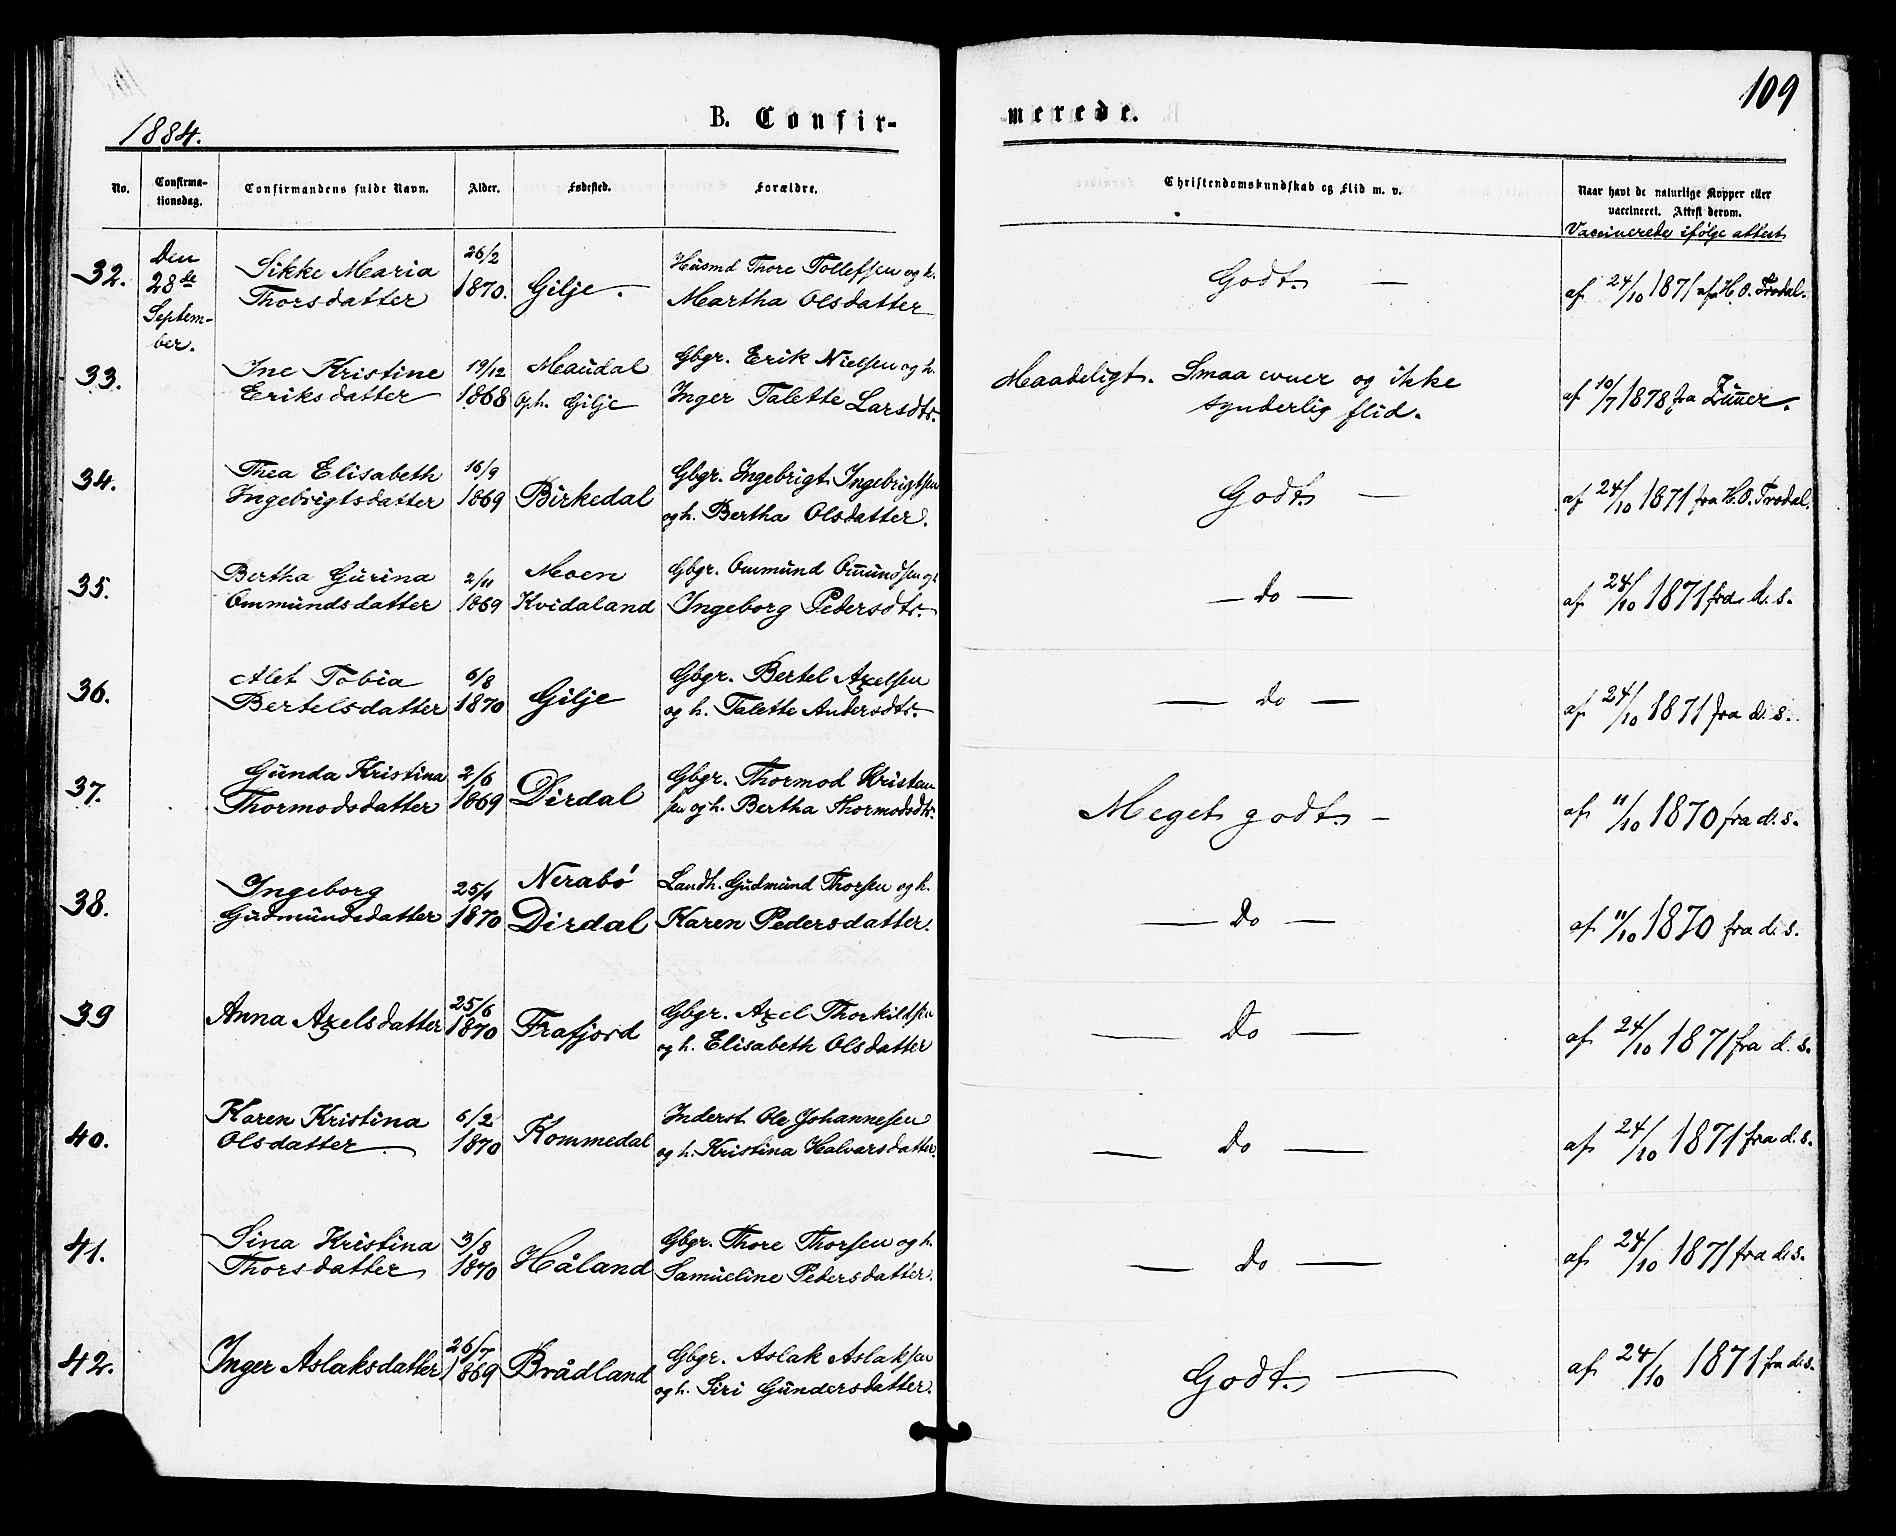 109
1884.
B. Confir-
merede.
No.
Confirma-
tionsdag.
Confirmandens fulde Navn.
Alder.
Fødested.
Forældre.
Christendomskundskab og Flid m. v.
Naar havt de naturlige Kopper eller
vaccineret. Attest derom.
Vaccinerede ifølge attest
32.
Den
28de
Septem-
ber.
Sikke Maria
Thorsdatter
26/2
1870.
Gilje.
Husmd Thore Tollefsen og h.
Martha Olsdatter
Godt. —
af 24/10 1871 af H. O. Trodal.
33.
Ine Kristine
Eriksdatter
19/12
1868
Maudal
Oph. Gilje
Gbgr. Erik Nielsen og h.
Inger Talette Larsdtr.
Maadeligt. Smaa evner og ikke
synderlig flid.
af 10/7 1878 fra Zimmer.
34.
Thea Elisabeth
Ingebrigtsdatter
16/9
1869
Birkedal
Gbgr. Ingebrigt Ingebrigtsen
og h. Bertha Olsdatter.
Godt —
af 24/10 1871 fra H. O. Trodal.
35.
Bertha Gurina
Ommundsdatter
2/11
1869
Moen
Kvidaland
Gbgr. Ommund Om̅undsen og h.
Ingeborg Pedersdtr.
— do —
af 24/10 1871 fra d. s.
36.
Alet Tobia
Bertelsdatter
6/8
1870
Gilje
Gbgr. Bertel Axelsen
og h. Talette Andersdtr.
— do —
af 24/10 1871 fra d. s.
37.
Gunda Kristina
Thormodsdatter
2/6
1869
Dirdal
Gbgr. Thormod Kristen
sen og h. Bertha Thormodsdtr.
Meget godt —
af 11/10 1870 fra d. s.
38.
Ingeborg
Gudmundsdatter
1870
Nerabø
Dirdal
Landh. Gudmund Thorsen og h.
Karen Pedersdatter.
— Do —
af 11/10 1870 fra d. s.
39
Anna Axelsdatter
25/6
1870
Frafjord
Gbgr. Axel Thorkildsen
og h. Elisabeth Olsdatter
— Do —
af 24/10 1871 fra d. s.
40.
Karen Kristina
Olsdatter
6/2
1870
Kommedal
Inderst Ole Johannesen
og h. Kristina Halvarsdatter.
— Do —
af 24/10 1871 fra d. s.
41.
Sina Kristina
Thorsdatter
3/8
1870
Håland
Gbgr. Thore Thorsen og h.
Samueline Pedersdatter.
— do —
af 24/10 1871 fra d. s.
42.
Inger Aslaksdatter
26/7
1869
Brådland
Gbgr. Aslak Aslaksen
og h. Siri Gundersdatter.
Godt. —
af 24/10 1871 fra d. s.